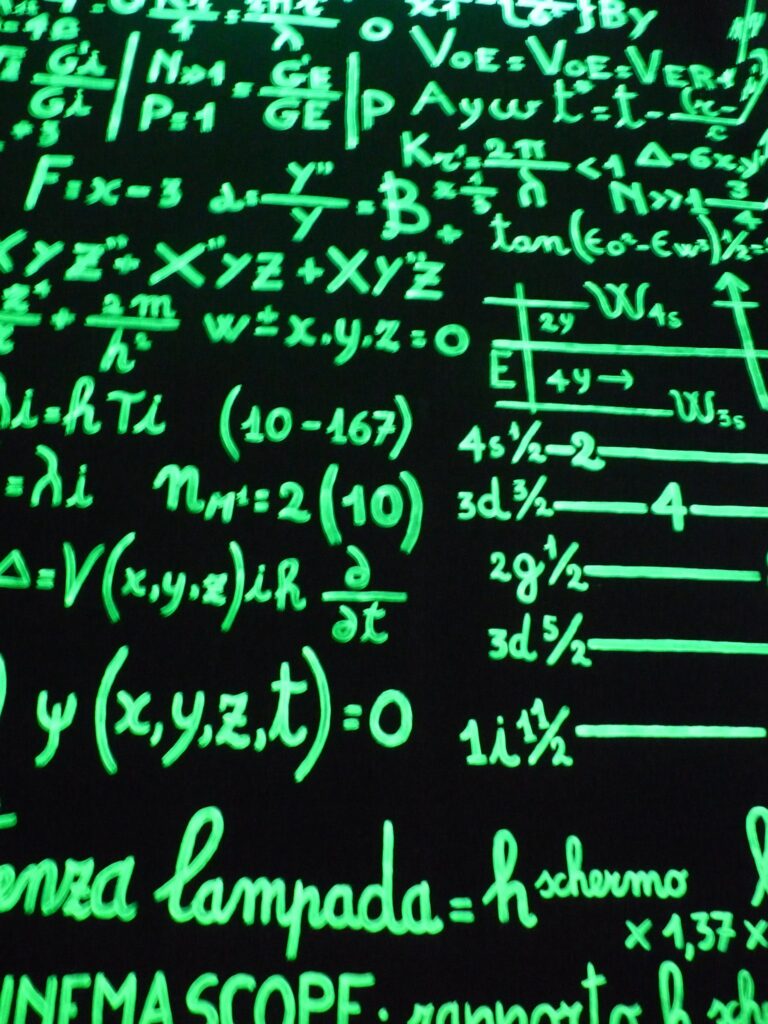 }By
Gi / Gi | N≫1 P=1 = GE / GE | P
VOE = VOE = VER1
Ayω t* = t -
Kr' = 2π / λ < 1 Δ-6x,y
F = x - 3 α = y'' / y = B
x 1/3 N≫1 3/4
tan(εo² - εw²)½ =
XYZ" + X"YZ + XY"Z
+ 2m / h² w ± x.y.z = 0
2y W4s
E 4y → W3s
λi = h Ti (10-167)
4s ½ - 2
= λi nM¹ = 2(10)
3d 3/2 4
Δ = V(x,y,z) iħ ∂ / ∂t
2g ½
3d 5/2
ψ(x,y,z,t) = 0
1i 11/2
enza lampada = h schermo
x 1,37 x
INEMASCOPE · rapporto h sch